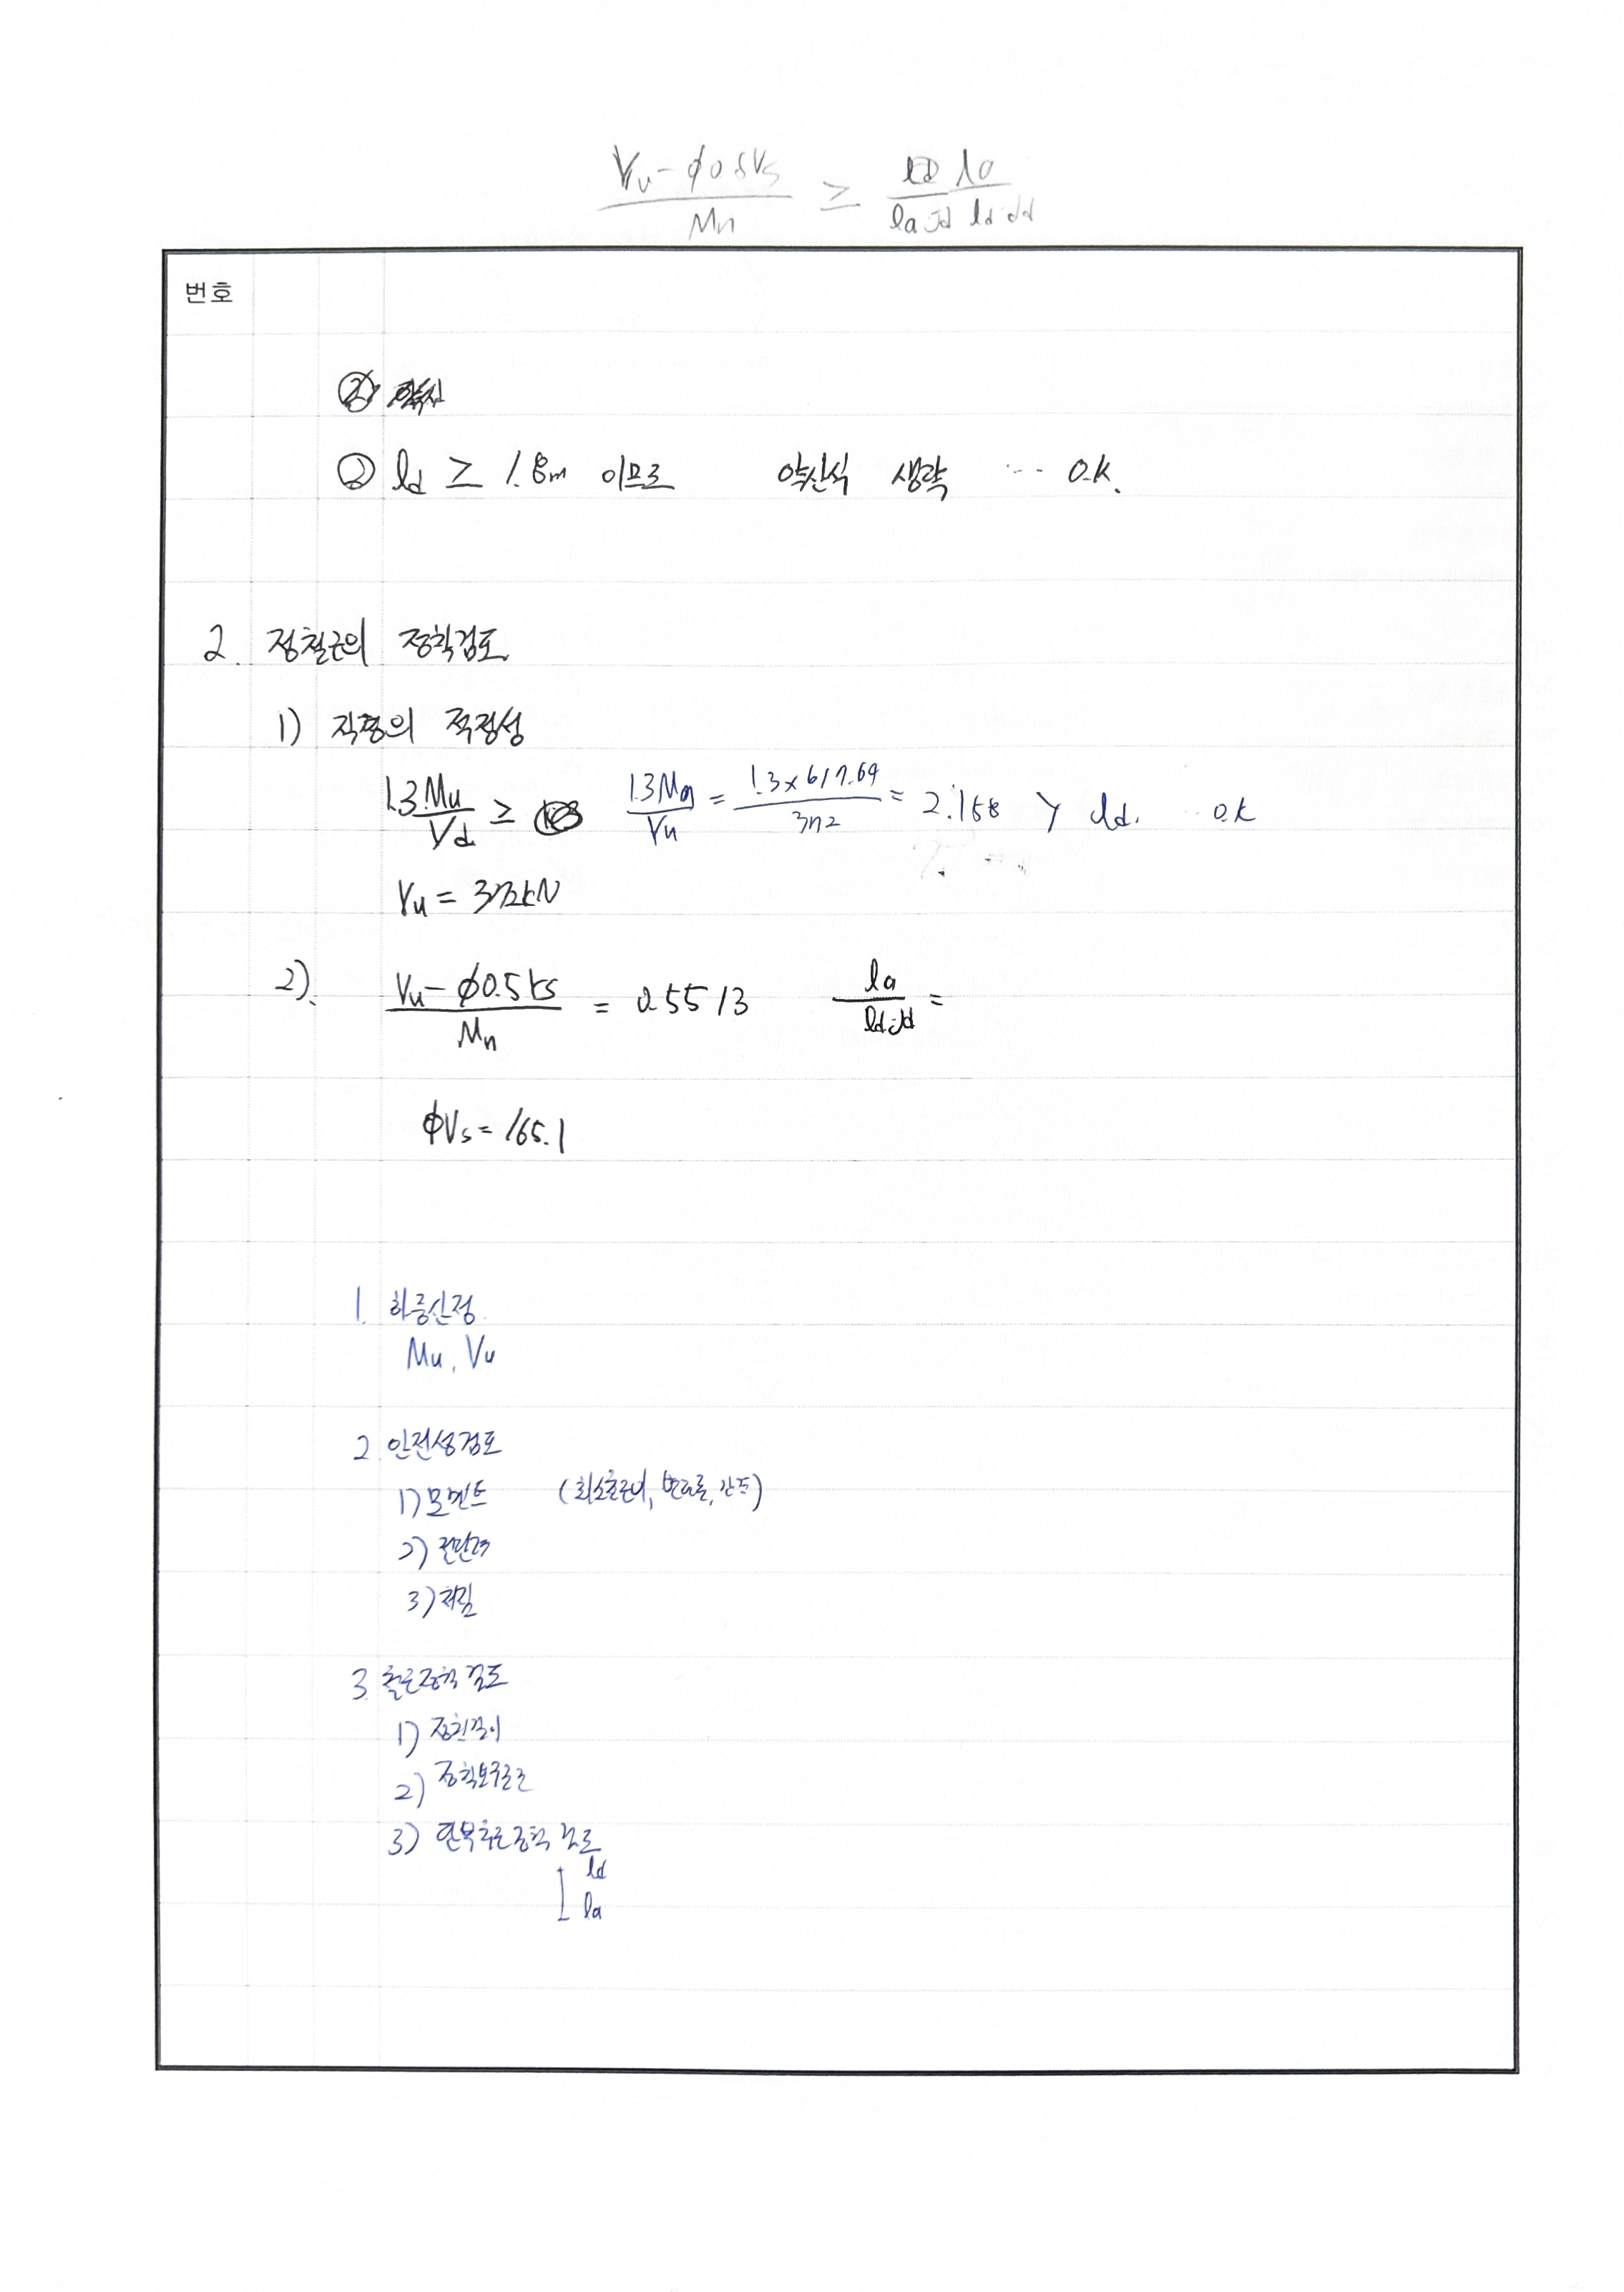 Vu - φ0.5Vs / Mn ≥ la / ld·jd
번호
② ld ≥ 1.8m 이므로 약산식 생략 ... O.K.
2. 정철근의 정착검토
1) 직경의 적정성
1.3Mu / Vd ≥ 1.3Mn / Vu = 1.3×617.69 / 372 = 2.158 > ld. .. O.K
Vu = 372kN
2). Vu - φ0.5Vs / Mn = 0.5513 la / ld·jd =
φVs = 165.1
1. 하중산정
Mu, Vu
2. 안전성검토
1) 모멘트 (최소철근비, 변형률, 간격)
2) 전단력
3) 처짐
3. 철근정착 검토
1) 정착길이
2) 정착보유길이
3) 단부철근정착 검토
ld
la